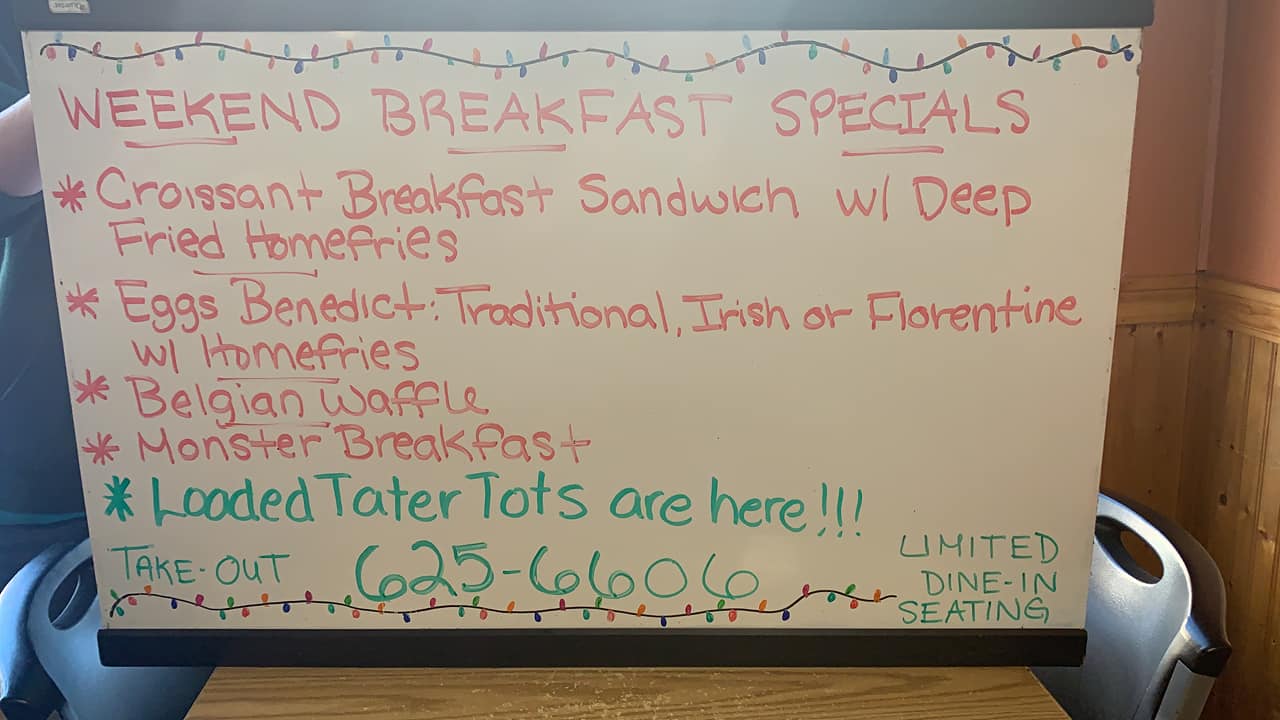 WEEKEND BREAKFAST SPECIALS
* Croissant Breakfast Sandwich w/ Deep
Fried Homefries
* Eggs Benedict: Traditional, Irish or Florentine
w/ Homefries
* Belgian Waffle
* Monster Breakfast
* Loaded Tater Tots are here!!!
TAKE-OUT 625-6606
LIMITED
DINE-IN
SEATING